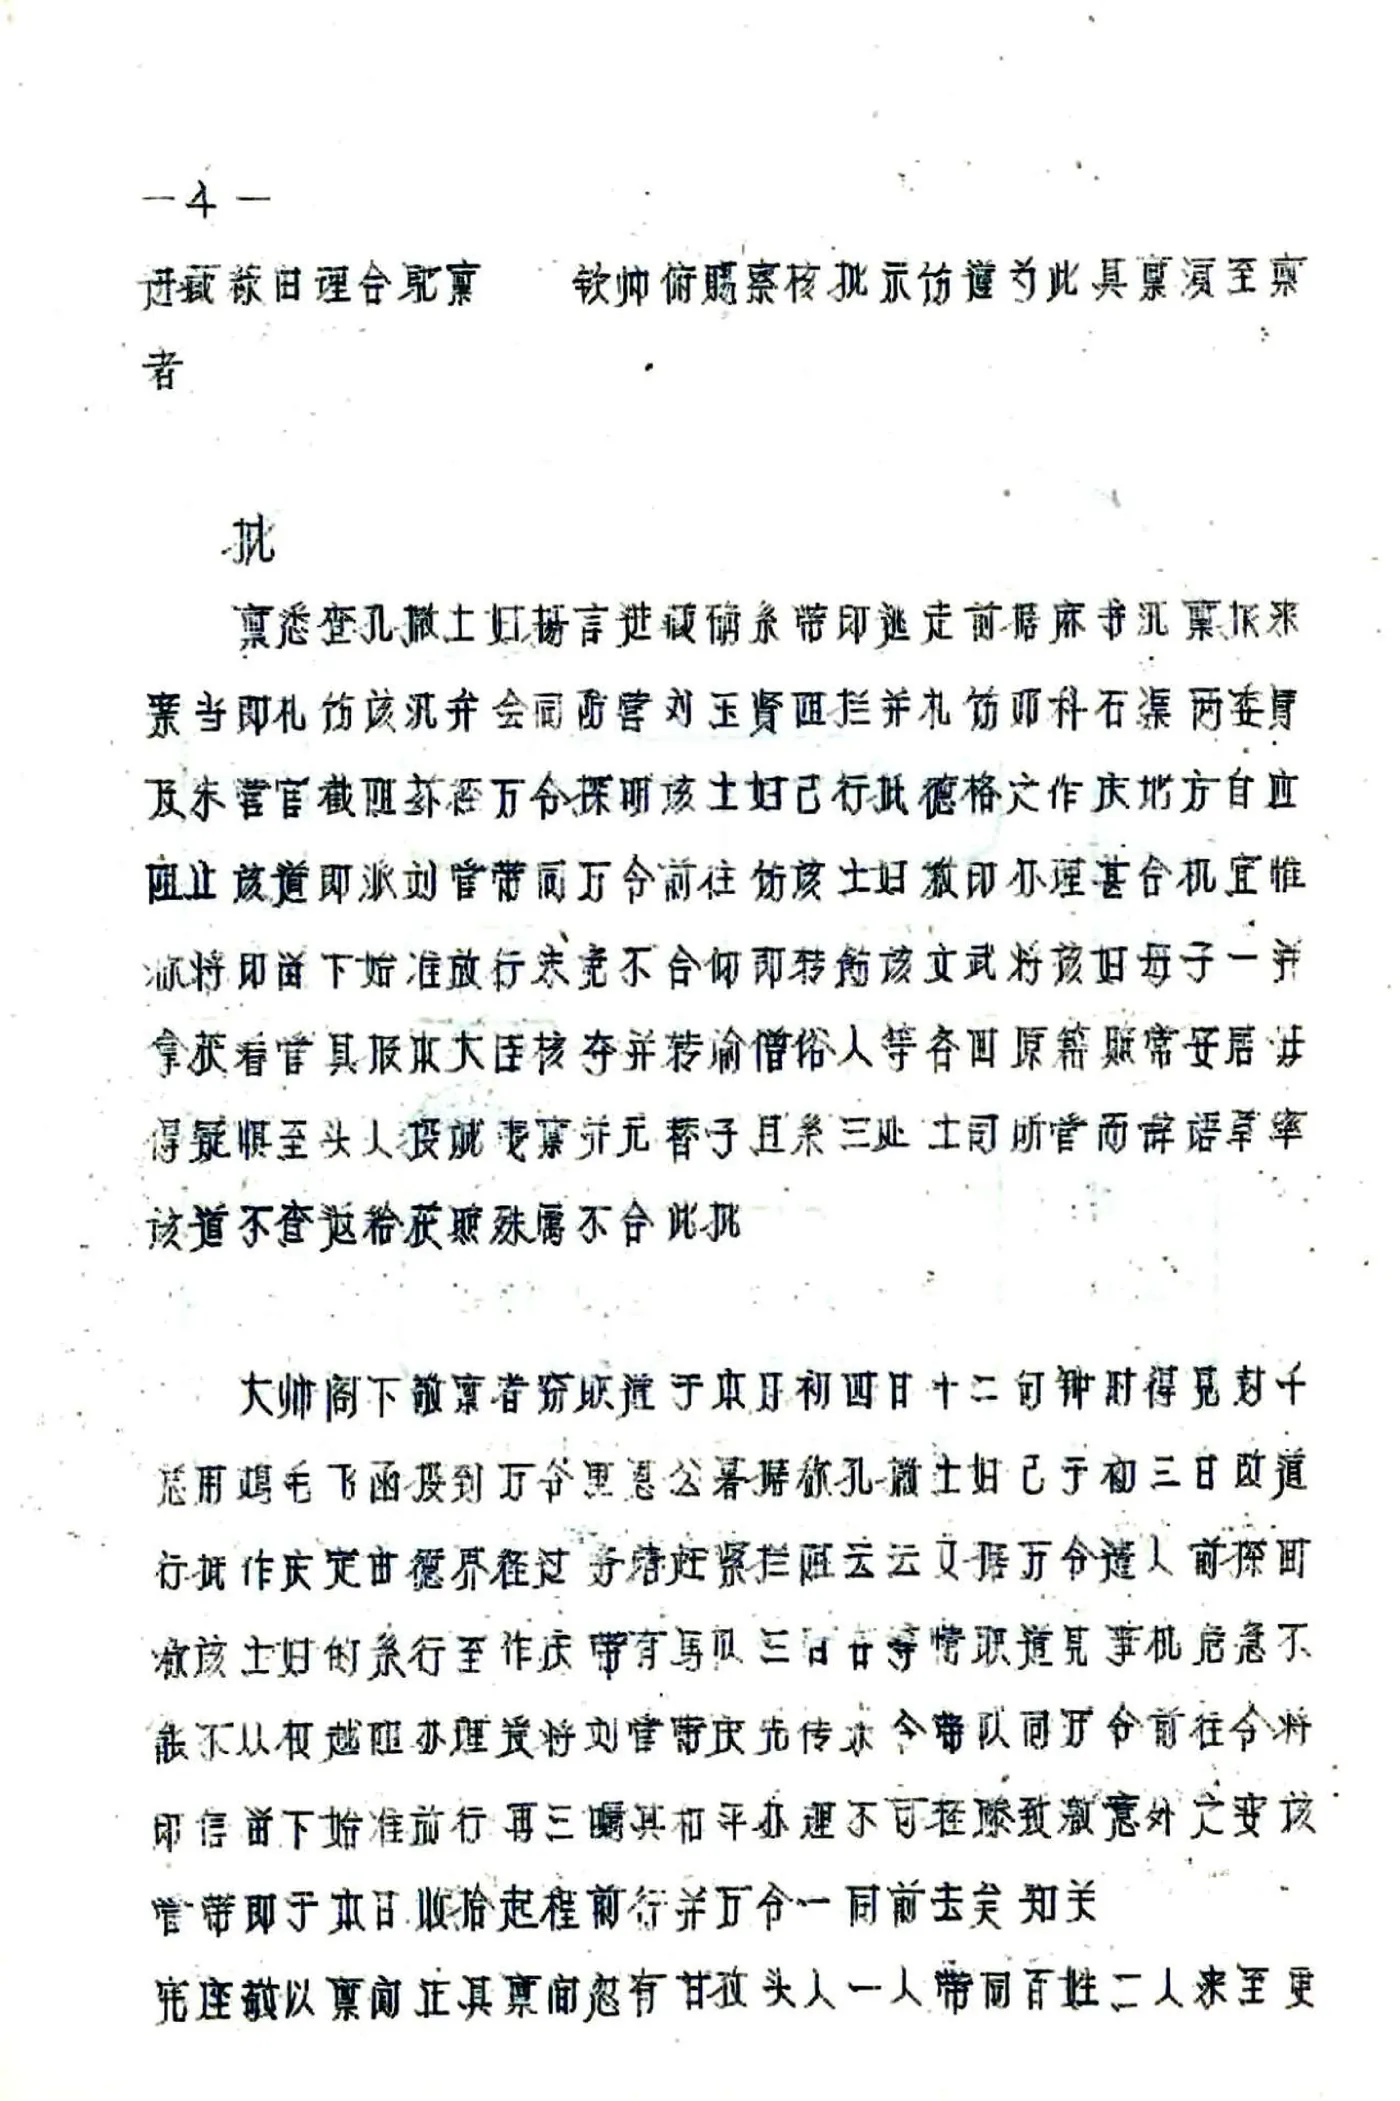 —4—
进藏缘由理合驰禀　　钦帅俯赐察核批示饬遵为此具禀须至禀
者
批
禀悉查孔撒土妇扬言进藏偷条带印逃走前据麻书汛禀报来
案当即札饬该汛弁会同防营刘玉贤阻拦并札饬邓科石渠两委员
及朱营官截阻兹经万令探明该土妇已行抵德格之作庆地方自应
阻止该道即派刘管带同万令前往饬该土妇缴印办理甚合机宜惟
称将印留下始准放行未免不合仰即转饬该文武将该妇母子一并
拿获看管具报本大臣核夺并转谕僧俗人等各回原籍照常安居毋
得疑惧至头人投诚夷禀并元替子且条三处土司所管而辞语草率
该道不查返给获照殊属不合此批
大帅阁下敬禀者窃职道于本月初四日十二句钟时得见封千
总用鸡毛飞函投到万令里恩公暮据称孔撒土妇已于初三日改道
行抵作庆定由德界经过务恳赶紧拦阻云云又据万令遣人前探回
称该土妇的条行至作庆带有马队三百廿等情职道见事机危急不
能不从权越阻办理爰将刘管带庆先传来令带队同万令前往令将
印信留下始准放行再三嘱其和平办理不可轻躁致激意外之变该
管带即于本日收拾起程前行并万令一同前去矣知关
宪座敬以禀闻正具禀间忽有甘孜头人一人带同百姓二人来至更